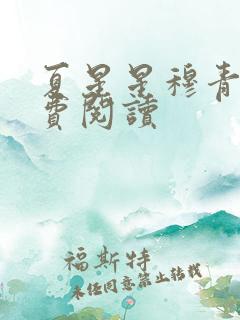 夏星星穆青
費閱讀
福斯特
未经同意禁止转载